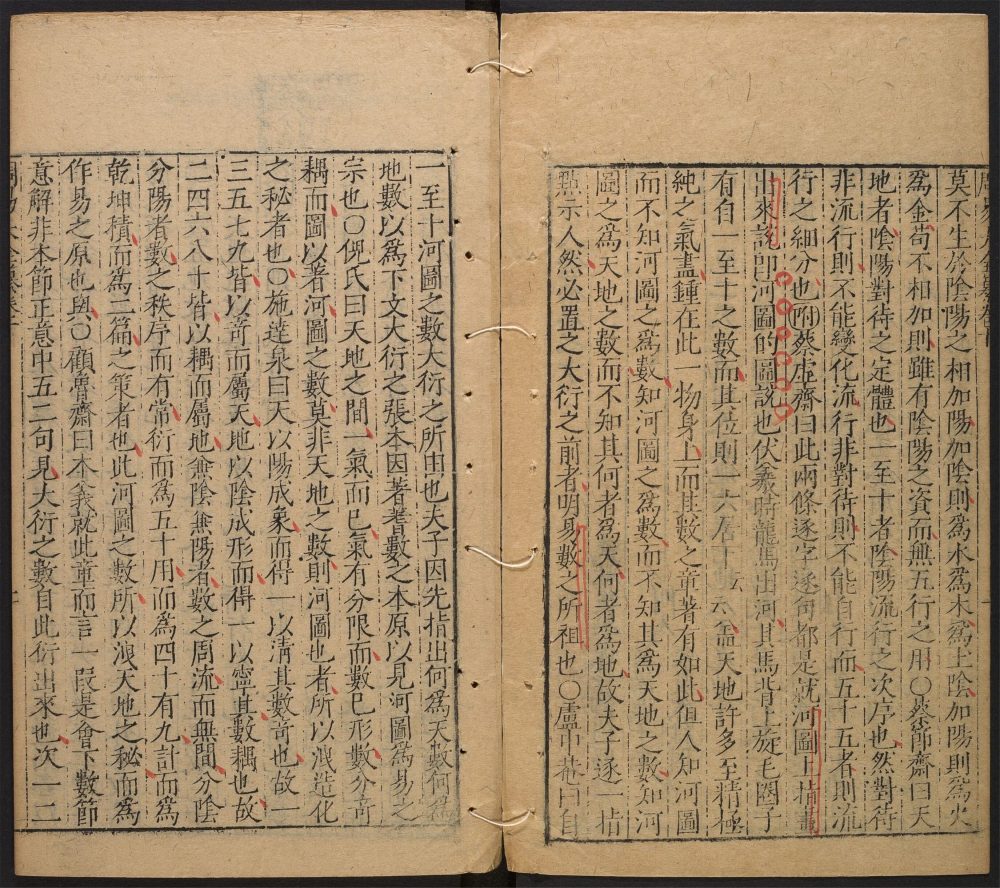 莫不生於陰陽之相加陽加陰則爲水爲木爲土陰加陽則爲火
爲金苟不相加則雖有陰陽之資而無五行之用〇蔡節齋曰天
地者陰陽對待之定體也一至十者陰陽流行之次序也然對待
非流行則不能變化流行非對待則不能自行而五十五者則流
行之細分也附蔡虛齋曰此兩條逐字逐句都是就河圖上指畫
出來說卽河圖的圖說也伏羲時龍馬出河其馬背上旋毛圈子
有自一至十之數而其位則一六居下蓋天地許多至精極
純之氣盡鍾在此一物身上而其數之章著有如此但人知河圖
而不知河圖之爲數知河圖之爲數而不知其爲天地之數知河
圖之爲天地之數而不知其何者爲天何者爲地故夫子逐一指
點示人然必置之大衍之前者明易數之所祖也〇盧中菴曰自
一至十河圖之數大衍之所由也夫子因先指出何爲天數何爲
地數以爲下文大衍之張本因著蓍數之本原以見河圖爲易之
宗也〇倪氏曰天地之間一氣而已氣有分限而數已形數分奇
耦而圖以著河圖之數莫非天地之數則河圖也者所以洩造化
之秘者也〇施達泉曰天以陽成象而得一以清其數奇也故一
三五七九皆以奇而屬天地以陰成形而得一以寧其數耦也故
二四六八十皆以耦而屬地兼陰兼陽者數之周流而無間分陰
分陽者數之秩序而有常衍而爲五十用而爲四十有九計而爲
乾坤積而爲二篇之策者也此河圖之數所以洩天地之秘而爲
作易之原也與〇顧魯齋曰本義就此章而言一段是會下數節
意解非本節正意中五二句見大衍之數自此衍出來也次一二